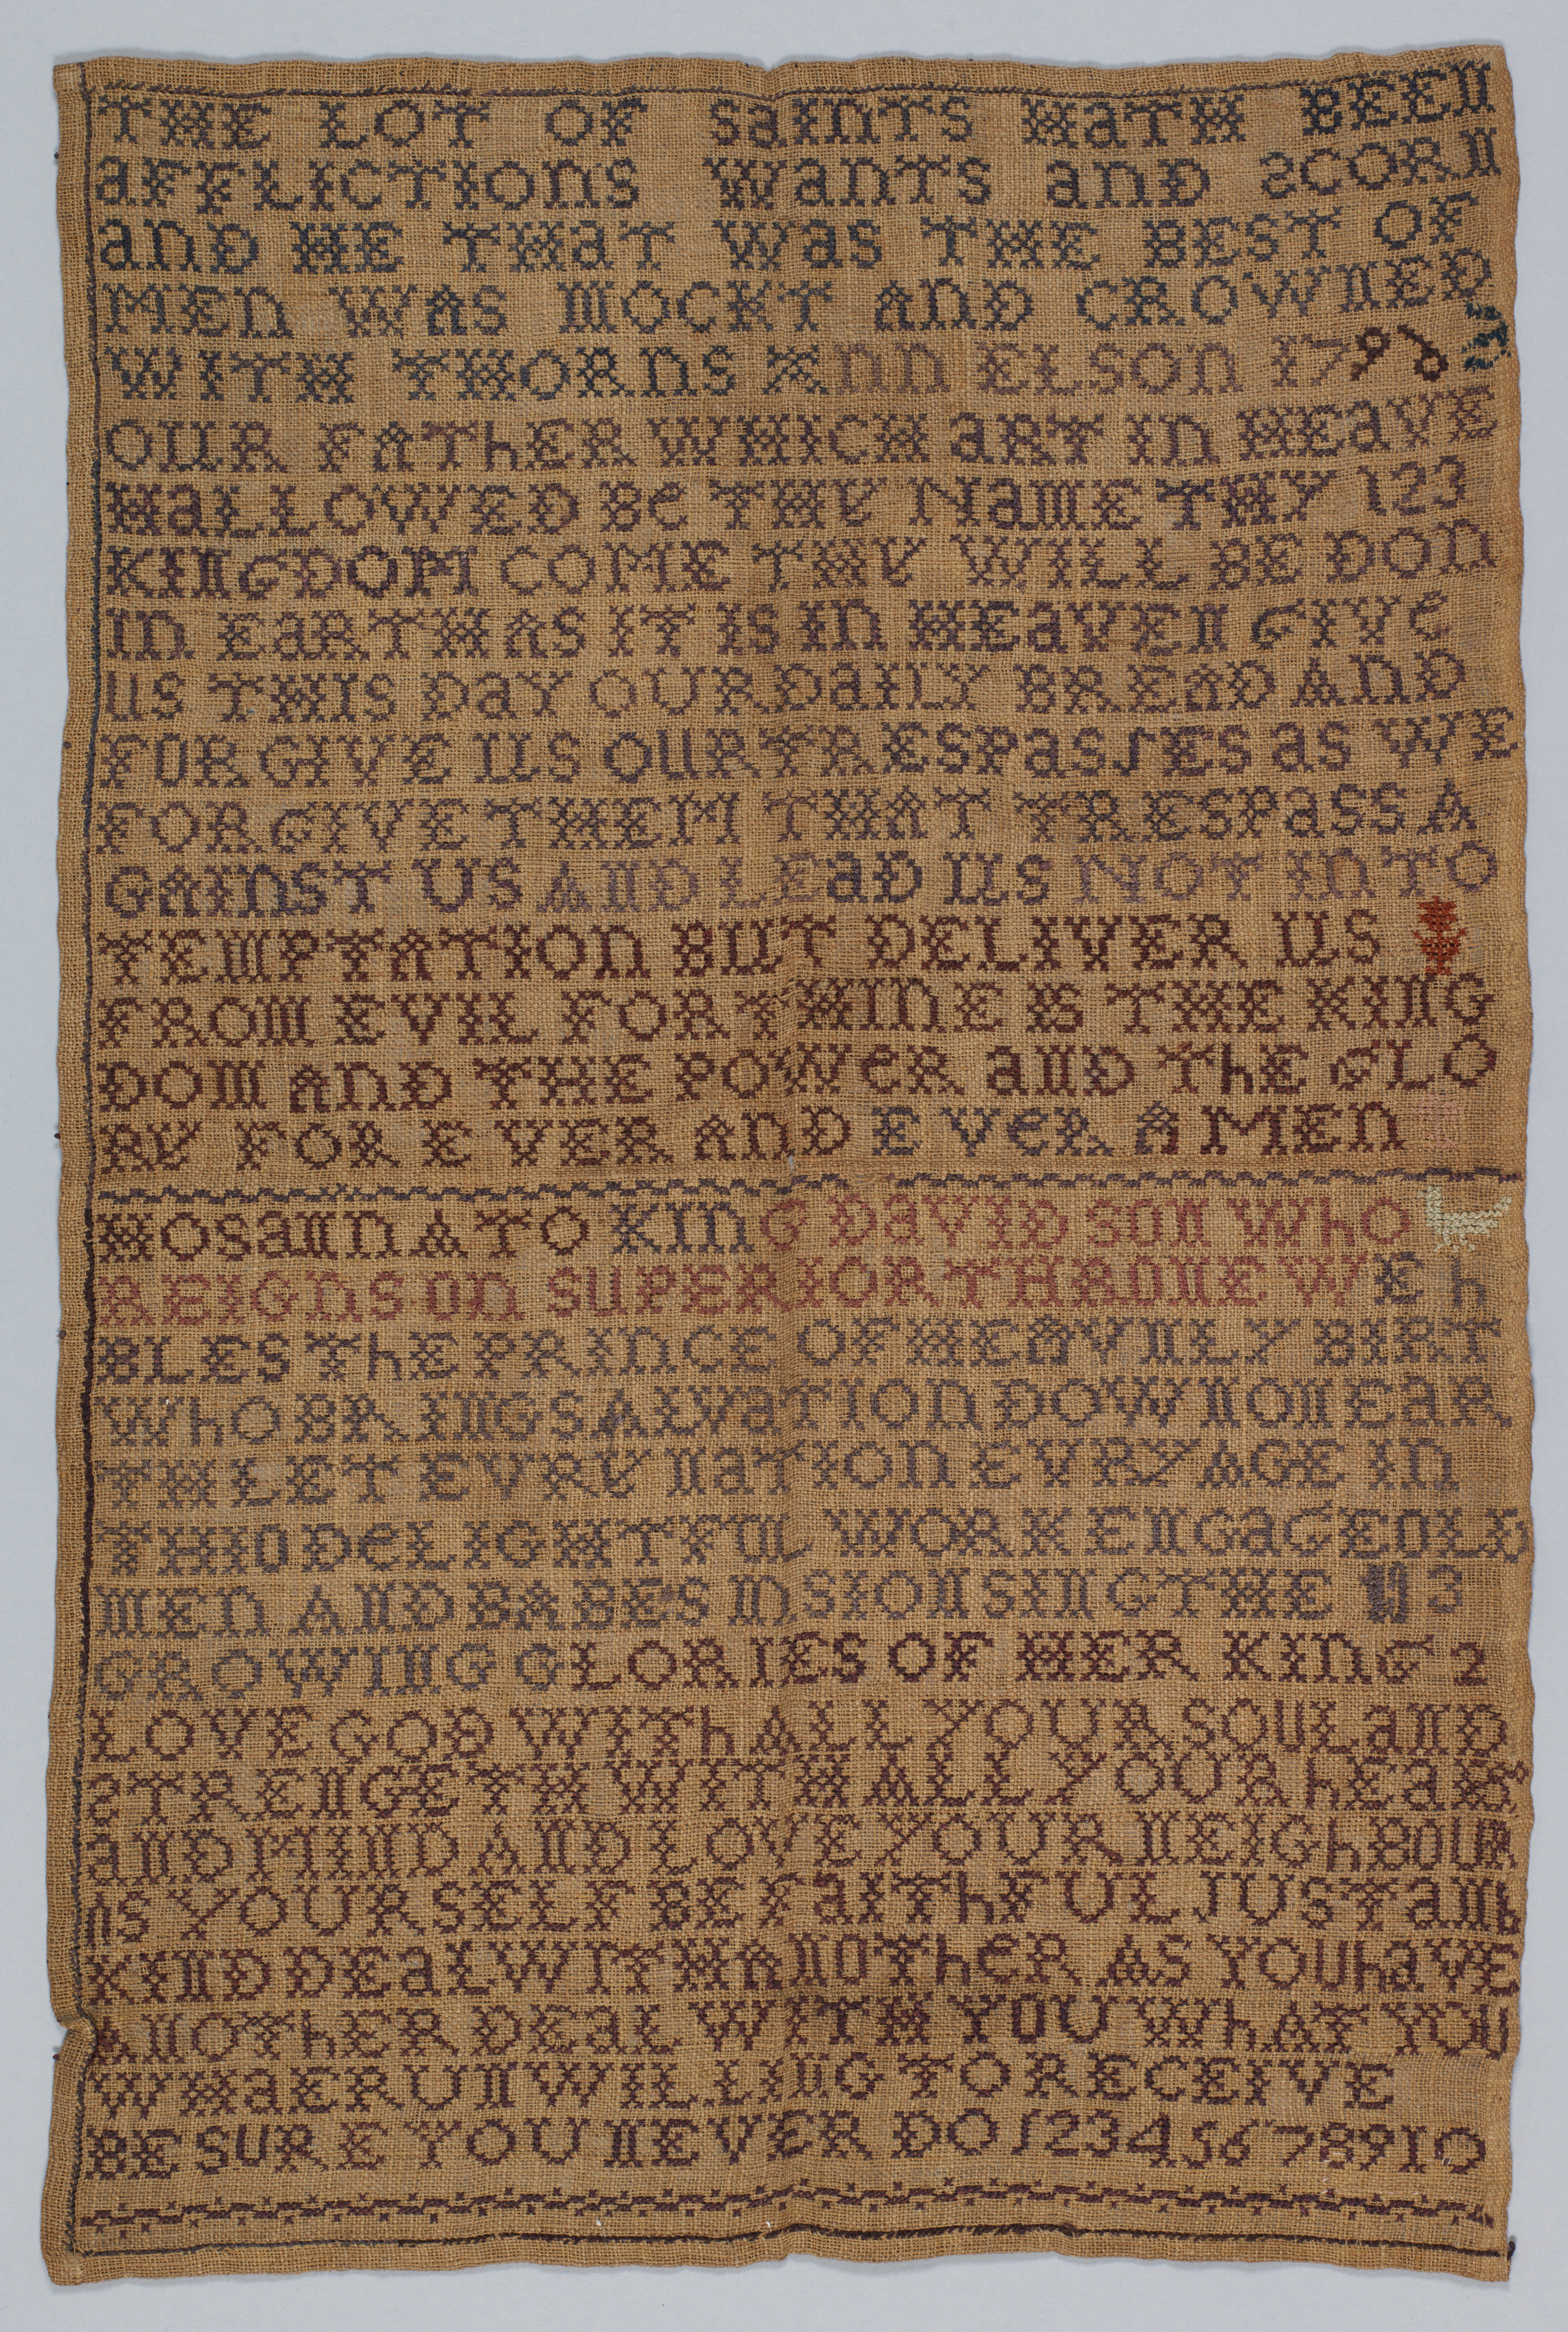 THE LOT OF SaInTS HaTH BEEN
aFFLICTIOnS WanTS anD SCORN
anD HE THaT Was THE BEST OF
MEn WAS MOCKT AnD CROWNED
WITH THORnS Ann ELSOn 1796
OUR FATHER WHICH ART In HEaVE
HaLLOWED Be THY NaME THY 123
KINGDOM COME THY WILL BE DOn
In EaRTH AS IT IS In HEaVEN GIVe
US THIS DaY OUR DaILY BREAD AnD
FORGIVE US OUR TRESPaSSES aS WE
FORGIVE THEM THAT TRESPaSS A
GAInST US AND LEaD US NOT InTO
TEMPTATIOn BUT DELIVER US
FROM EVIL FOR THInE IS THE KING
DOM AnD THE POWeR aND ThE GLO
RY FOR EVER AnD EVeR AMEn
HOSaNnA TO KInG DaVID SON WhO
REIGnS On SUPERIOR THRONE WE h
BLES ThE PRInCE OF HEAVNLY BIRT
WhO BRINGS ALVaTIOn DOWN ON EaR
TH LET EVRY NaTIOn EVRY AGE In
THIO DeLIGHTFUL WORK ENGaGE OLD
MEn AND BABES In SION SING THE 3
GROWING GLORIES OF HER KInG 2
LOVE GOD WITh ALL YOUR SOUL aND
STRENGETH WITH ALL YOUR hEaR
aND MIND AND LOVE YOUR NEIGhBOUR
AS YOURSELF BE FaIThFUL JUST aND
KIND DEaL WITH ANOThER AS YOU haVE
ANOThER DEaL WITH YOU WhAT YOU
WHaERUNWILLING TO RECEIVE
BE SURE YOU NEVER DO 12345678910